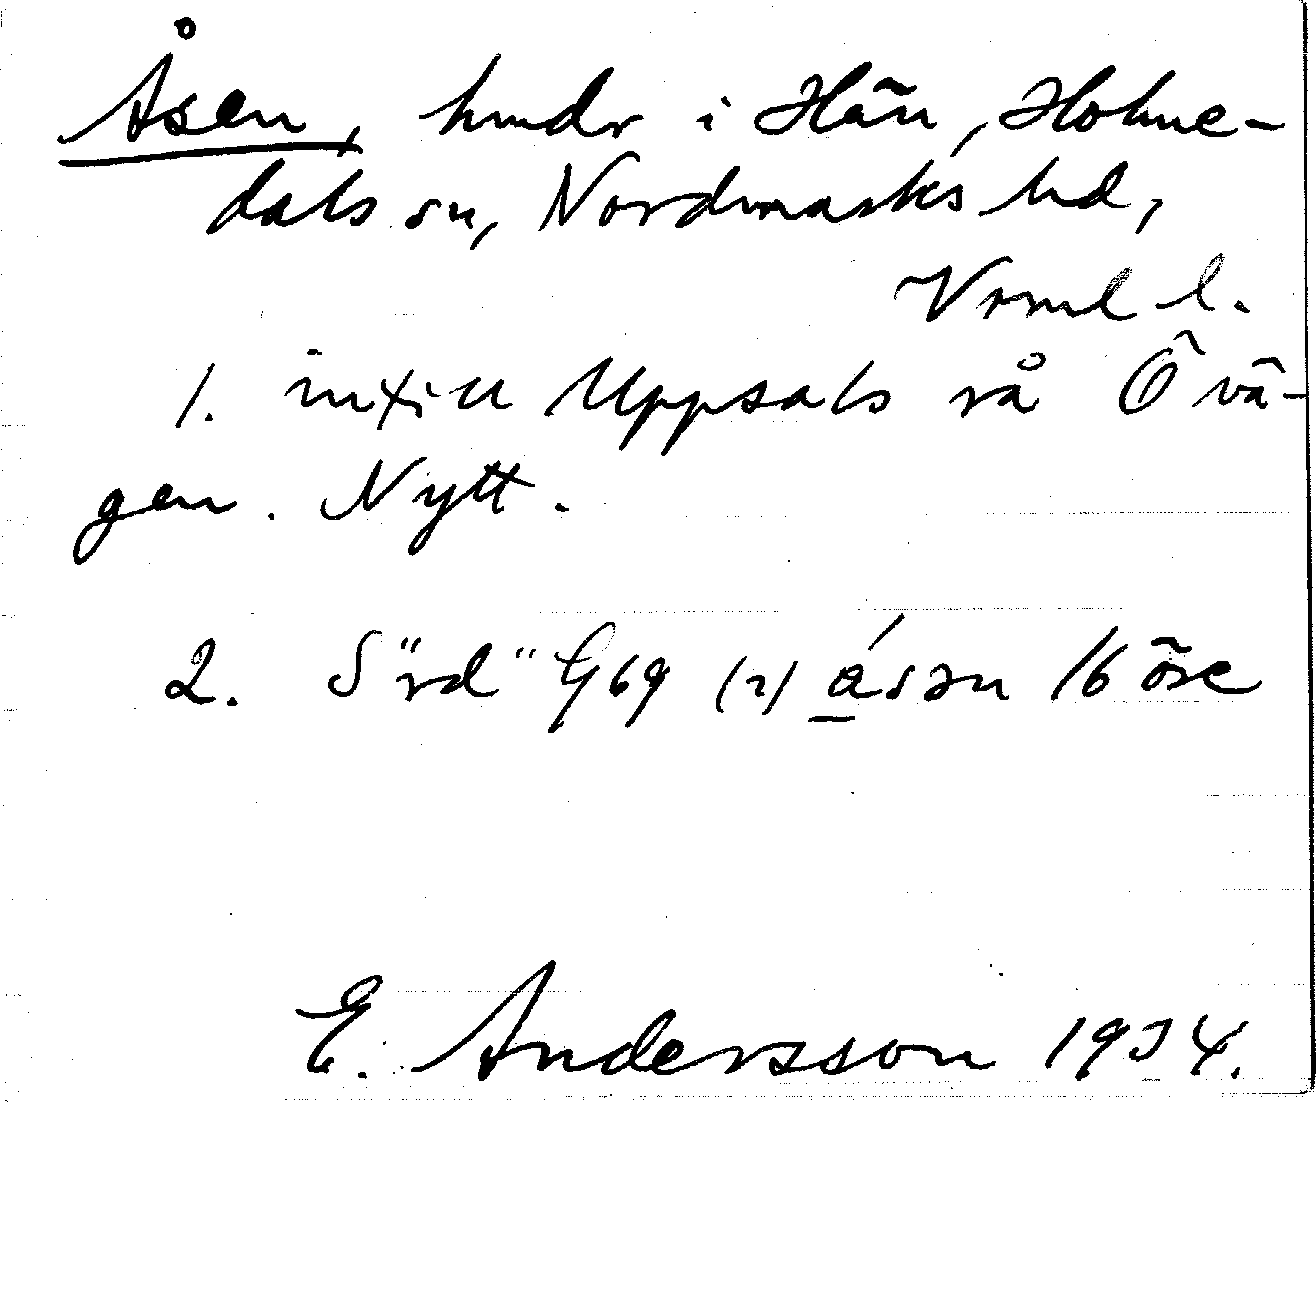 Åsen, hmdr i Hän, Holme-
dals sn, Nordmarks hd,
Vrml l.
1. intill Uppsals rå Ö vä-
gen. Nytt.
2. S "rd" G 69 (2) åsən 16 öre
E. Andersson 1934.